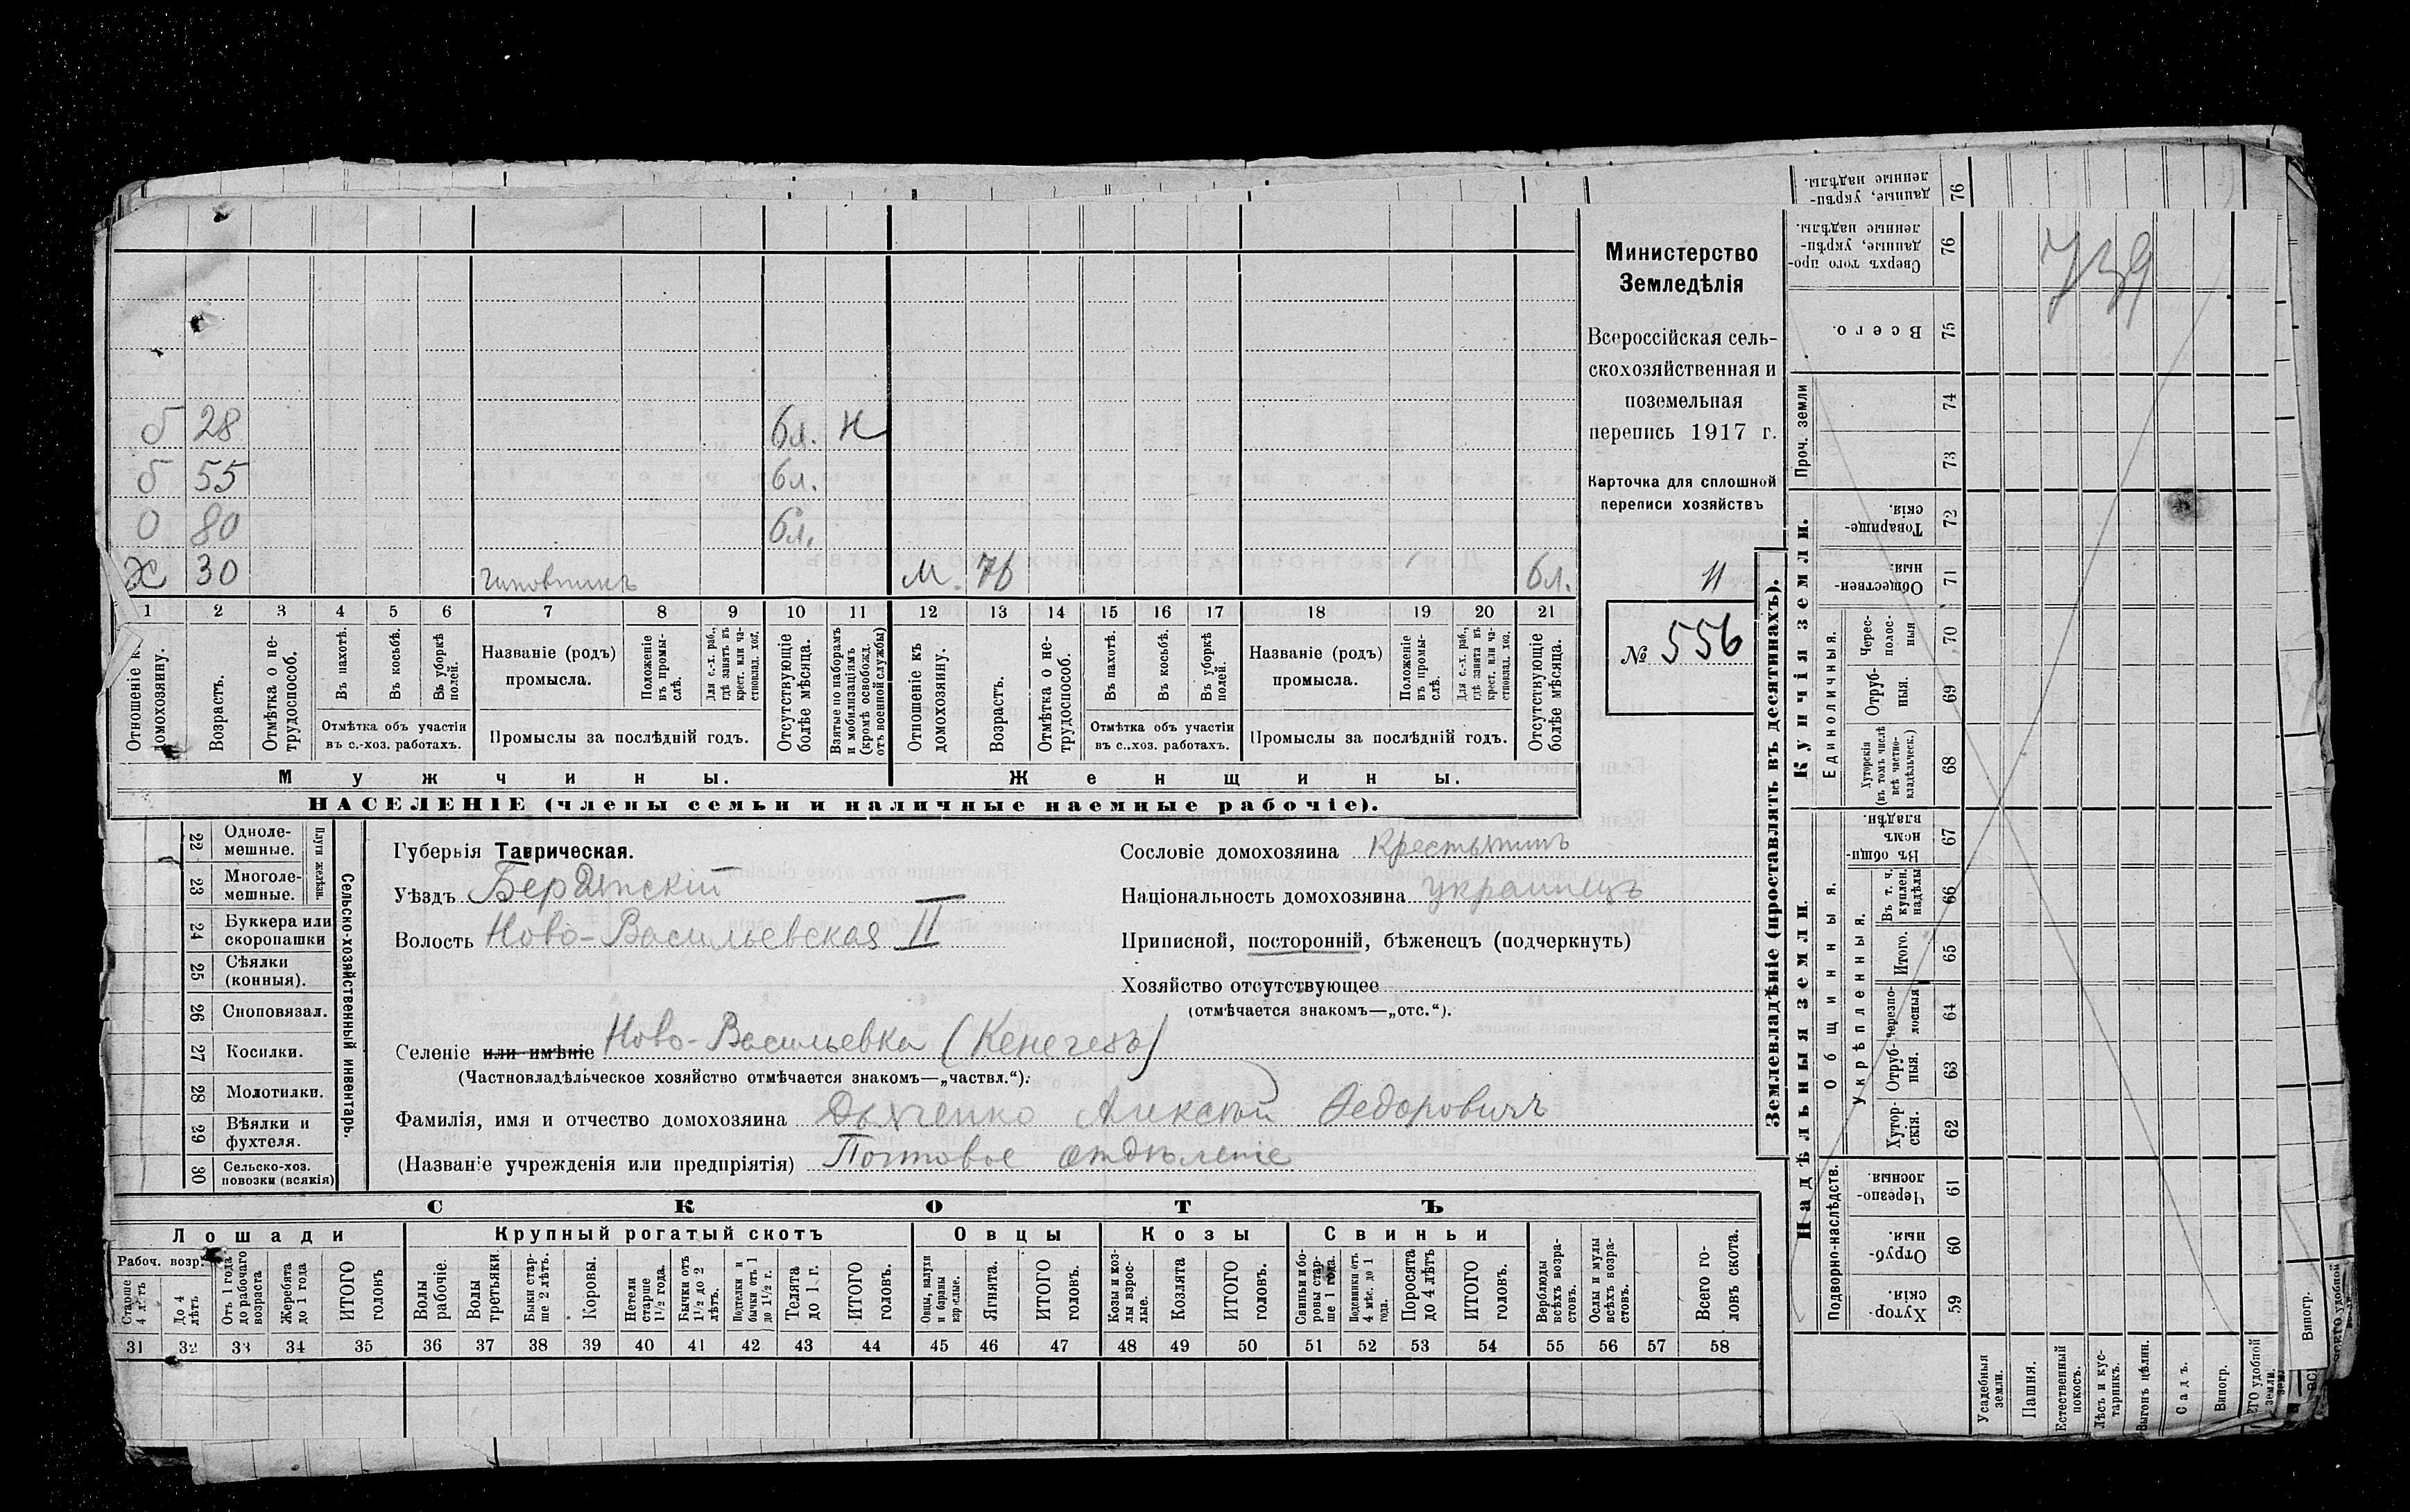 Министерство
Земледѣлія
Всероссійская сель-
скохозяйственная и
поземельная
перепись 1917 г.
Карточка для сплошной
переписи хозяйствъ
11
№ 556
739
б 28 бл. н
б 55 бл.
о 80 бл.
х 30 чиновникъ м. 76 бл.
1 2 3 4 5 6 7 8 9 10 11 12 13 14 15 16 17 18 19 20 21
Отношеніе къ домохозяину.
Возрастъ.
Отмѣтка о не-
трудоспособ.
Въ пахотѣ.
Въ косьбѣ.
Въ уборкѣ
полей.
Отмѣтка объ участіи
въ с.-хоз. работахъ.
Названіе (родъ)
промысла.
Положеніе
въ промы-
слѣ.
Для с.-х. раб.,
гдѣ занятъ въ
крест. или ча-
стновлад. хоз.
Промыслы за послѣдній годъ.
Отсутствующіе
болѣе мѣсяца.
Взятые по наборамъ
и мобилизаціямъ
(кромѣ освобожд.
отъ военной службы)
Отношеніе къ
домохозяину.
Возрастъ.
Отмѣтка о не-
трудоспособ.
Въ пахотѣ.
Въ косьбѣ.
Въ уборкѣ
полей.
Отмѣтка объ участіи
въ с..хоз. работахъ.
Названіе (родъ)
промысла.
Положеніе
въ промы-
слѣ.
Для с.-х. раб.,
гдѣ занята въ
крест. или ча-
стновлад. хоз.
Промыслы за послѣдній годъ.
Отсутствующіе
болѣе мѣсяца.
Мужчины. Женщины.
НАСЕЛЕНІЕ (члены семьи и наличные наемные рабочіе).
Сельско-хозяйственный инвентарь.
Плуги желѣзн.
22 Одноле-
мешные.
23 Многоле-
мешные.
24 Буккера или
скоропашки
25 Сѣялки
(конныя).
26 Сноповязал.
27 Косилки.
28 Молотилки.
29 Вѣялки и
фухтеля.
30 Сельско-хоз.
повозки (всякія)
Губернія Таврическая.
Уѣздъ Бердянскій
Волость Ново-Васильевская II
Сословіе домохозяина Крестьянинъ
Національность домохозяина украинецъ
Приписной, посторонній, бѣженецъ (подчеркнуть)
Хозяйство отсутствующее
(отмѣчается знакомъ—„отс.“).
Селеніе или имѣніе Ново-Васильевка (Кенегезъ)
(Частновладѣльческое хозяйство отмѣчается знакомъ—„частвл.“).
Фамилія, имя и отчество домохозяина Дьяченко Алексѣй Федоровичъ
(Названіе учрежденія или предпріятія) Почтовое отдѣленіе
СКОТЪ
Лошади Крупный рогатый скотъ Овцы Козы Свиньи
Рабоч. возр.
Старше
4 лѣтъ
До 4
лѣтъ
Отъ 1 года
до рабочаго
возраста
Жеребята
до 1 года
ИТОГО
головъ
Волы
рабочіе.
Волы
третьяки.
Быки стар-
ше 2 лѣтъ.
Коровы.
Нетели
старше
1½ года.
Бычки отъ
1½ до 2
лѣтъ.
Подтелки и
бычки отъ 1
до 1½ г.
Телята
до 1 г.
ИТОГО
головъ.
Овцы, валухи
и бараны
взрослые.
Ягнята.
ИТОГО
головъ.
Козы и коз-
лы взрос-
лые.
Козлята
ИТОГО
головъ.
Свиньи и бо-
ровы стар-
ше 1 года.
Подсвинки отъ
4 мѣс. до 1
года.
Поросята
до 4 лѣтъ
ИТОГО
головъ.
Верблюды
всѣхъ возра-
стовъ.
Ослы и мулы
всѣхъ возра-
стовъ.
Всего го-
ловъ скота.
31 32 33 34 35 36 37 38 39 40 41 42 43 44 45 46 47 48 49 50 51 52 53 54 55 56 57 58
Землевладѣніе (проставлять въ десятинахъ).
Купчія земли.
Надѣльныя земли.
Проч. земли
Единоличныя.
Общинныя.
Укрѣпленныя.
Подворно-наслѣдств.
данные, укрѣп-
ленные надѣлы.
76
Сверхъ того про-
данные, укрѣп-
ленные надѣлы.
76
Всего.
75
74
73
Товарище-
скія.
72
Обществен-
ныя.
71
Черес-
полос-
ныя
70
Отруб-
ныя.
69
Хуторскія
(въ томъ числѣ
всѣ частно-
владѣльческ.)
68
Въ общин-
номъ
владѣн.
67
Въ т. ч.
куплен.
надѣлы
66
Итого.
65
Черезпо-
лосныя
64
Отруб-
ныя.
63
Хутор-
скія.
62
Черезпо-
лосныя
61
Отруб-
ныя.
60
Хутор-
скія.
59
Усадебныя
земли.
Пашня.
Естественный
покосъ.
Лѣсъ и кус-
тарникъ.
Выгонъ цѣлин.
Садъ.
Виногр.
ЕГО удобной
земли.
Виногр.